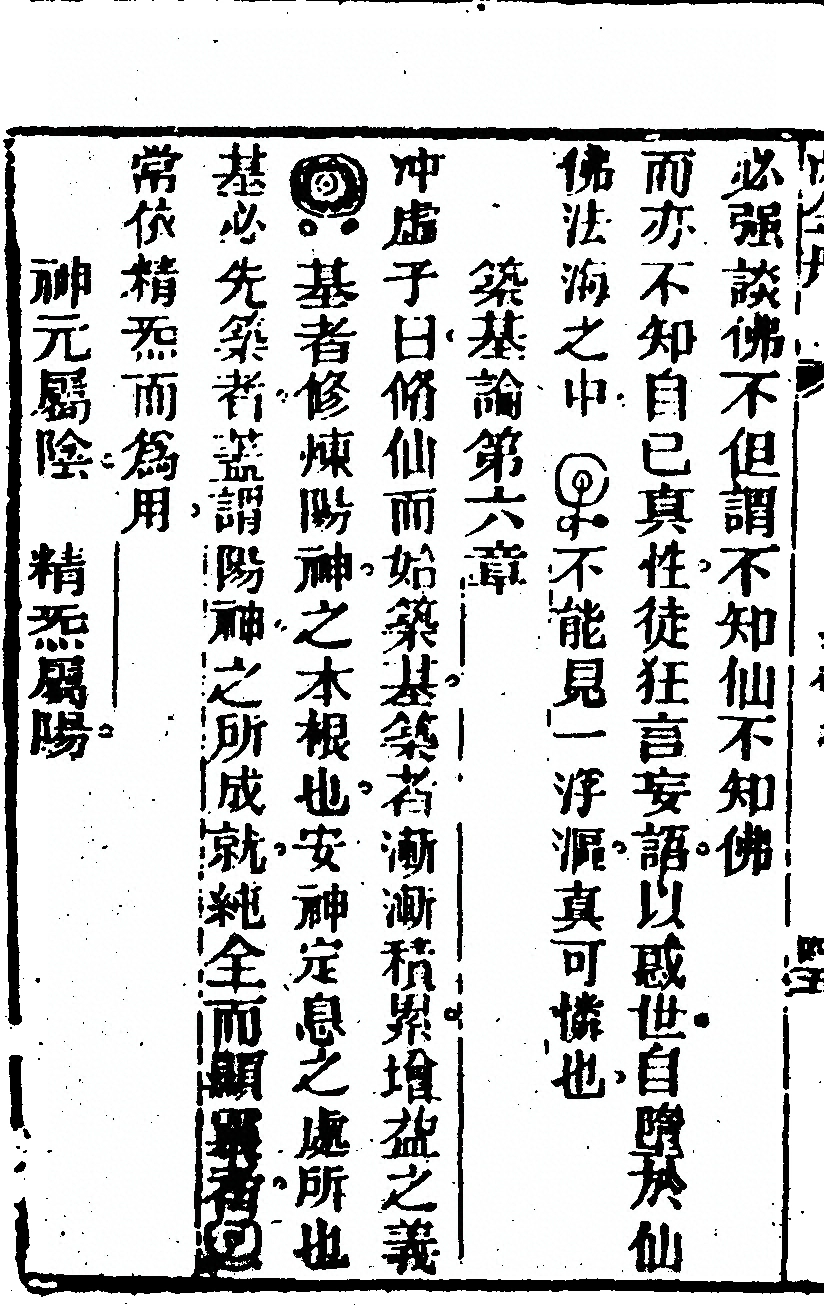 必强談佛不但謂不知仙不知佛
而亦不知自已真性徒狂言妄語以惑世自墮於仙
佛法海之中
不能見一浮漚真可憐也
築基論第六章
冲虛子曰脩仙而始築基築者漸漸積累增益之義
基者修煉陽神之本根也安神定息之處所也
基必先築者蓋謂陽神之所成就純全而顯
者
常依精炁而爲用
神元屬陰 精炁屬陽